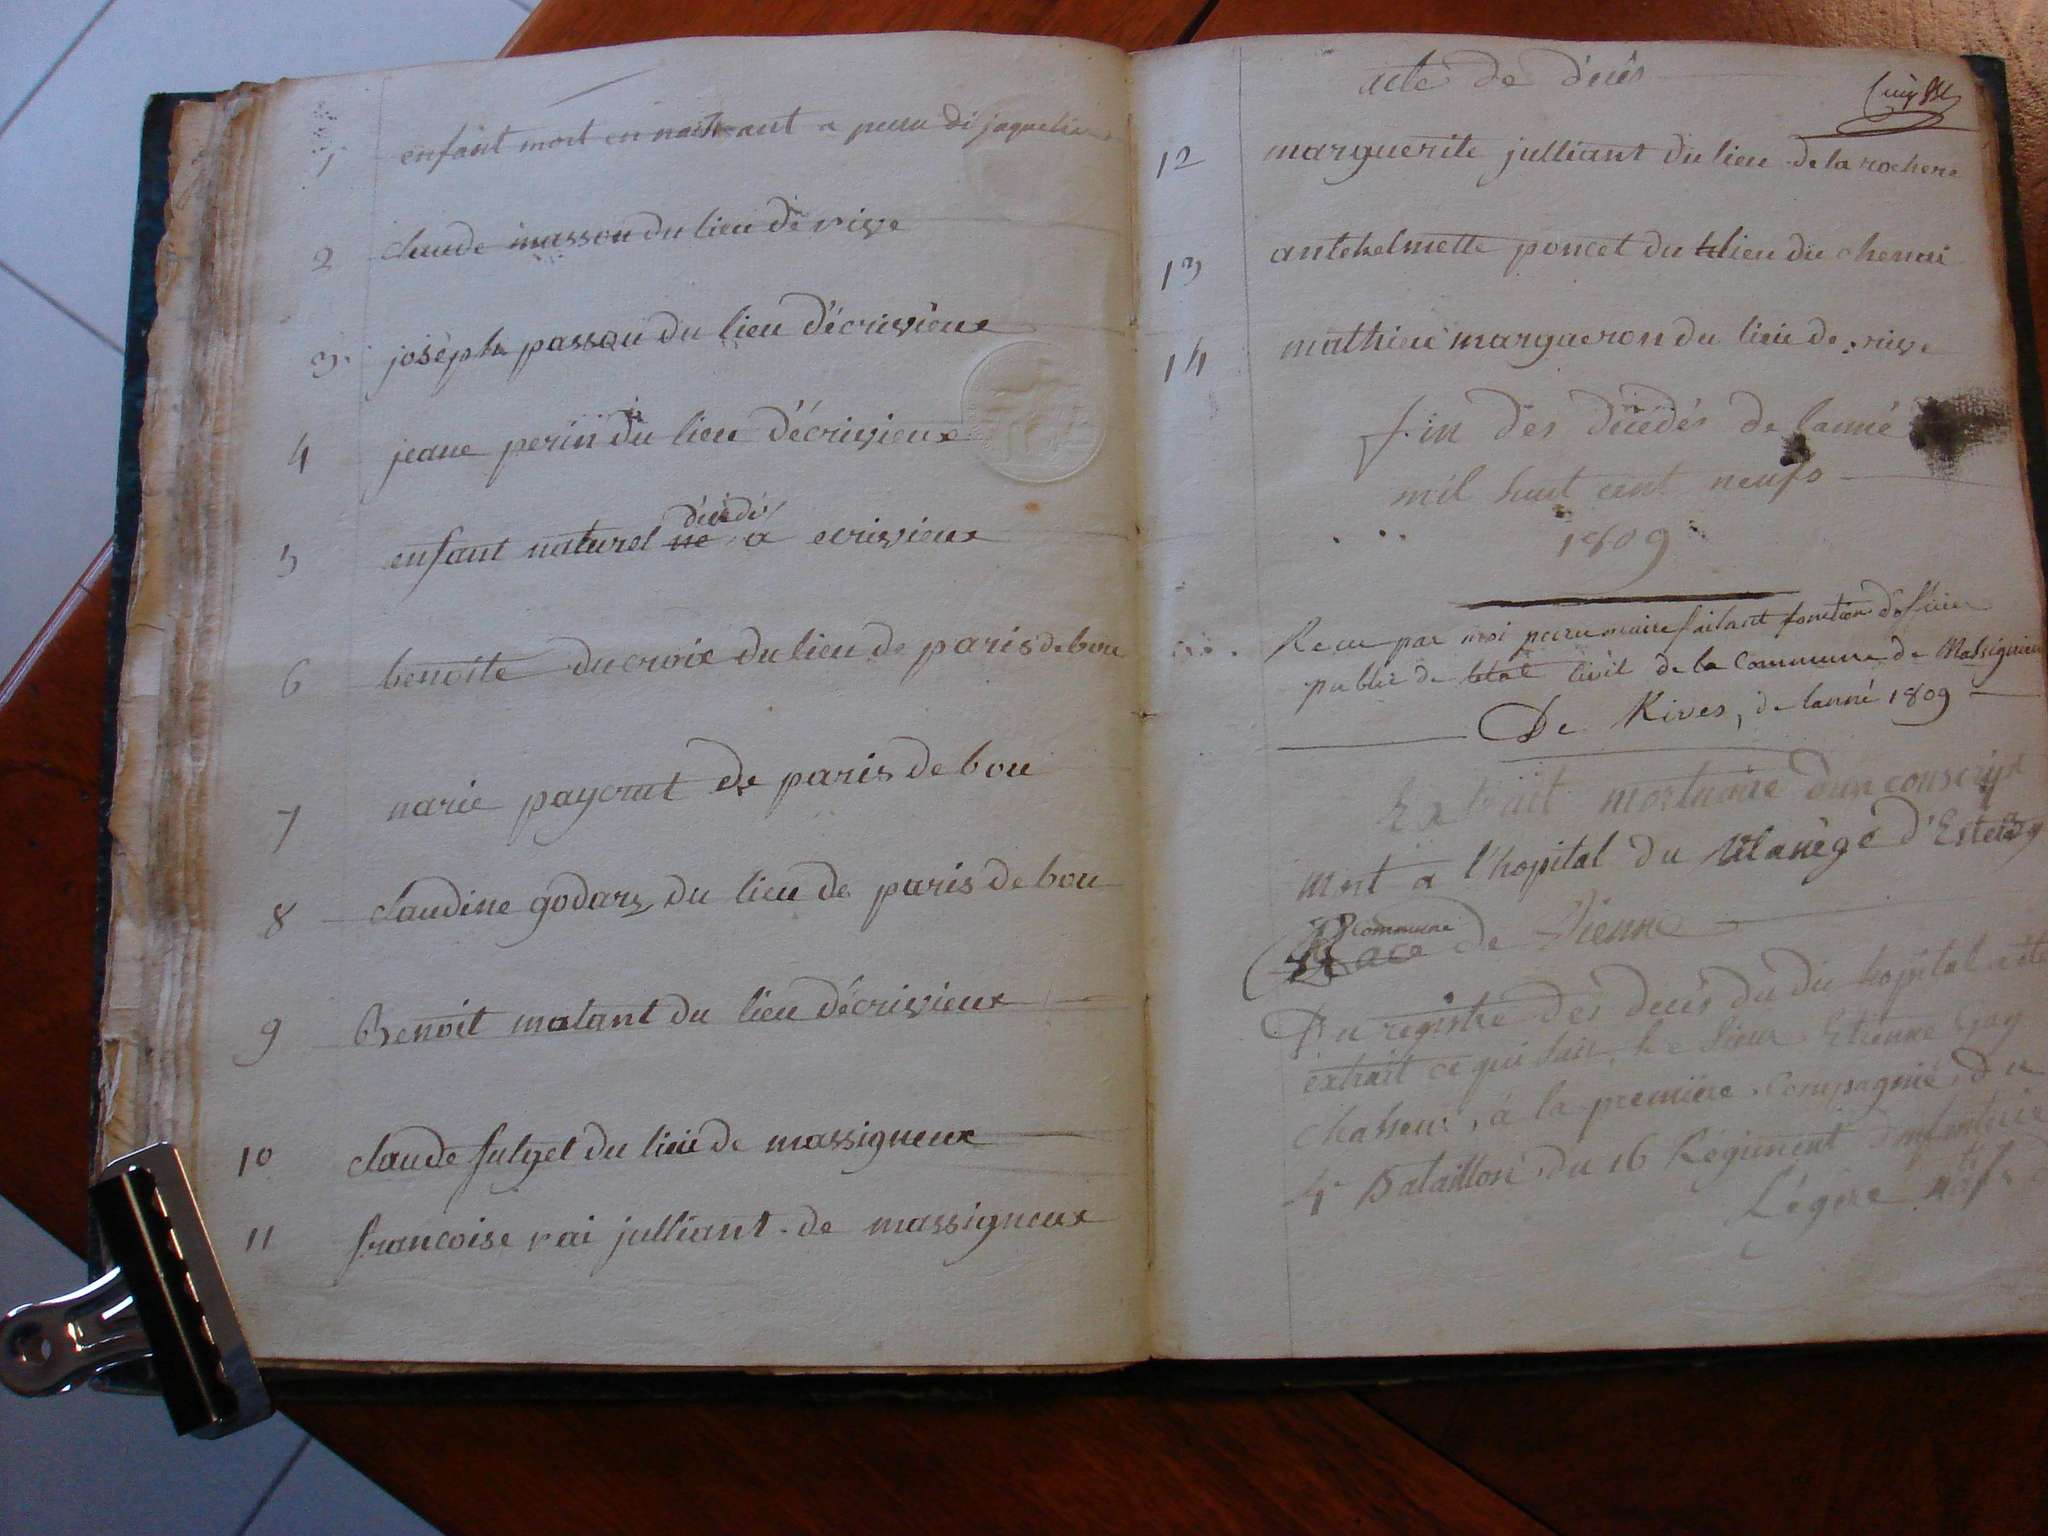 1 enfant mort en naissant a
2 claude masson du lieu de rive
3 josèph passou du lieu d'écrivieux
4 jeane perin du lieu d'écrivieux
décédé
5 enfant naturel ne a ecrivieux
6 benoite ducroix du lieu de paris de bou
7 marie paycrut de paris de bou
8 claudine godars du lieu de paris de bou
9 Benoit matant du lieu d'écrivieux
10 claude fulyel du lieu de massigneux
11 francoise rai julliant de massigneux
acte de décès
12 marguerite julliant du lieu de la rochere
13 antehelmette poncet du lieu du chemi
14 mathieu margueron du lieu de rive
fin des décédés de lanné
mil huit cent neufs
1809
Recu par moi maire faisant fonction
public de letat Civil de la Commune de Massignieu
De Rives, de lanné 1809
Extrait mortuaire dun conscript
mort a l'hopital du Manège d'
commune
Place de Vienne
Du registre des decès du du hopital a été
extrait ce qui suit, le Sieur Etienne Gay
Chasseur, à la première Compagnie du
4e Bataillon du 16 Régiment d'infanterie
Légère natif d